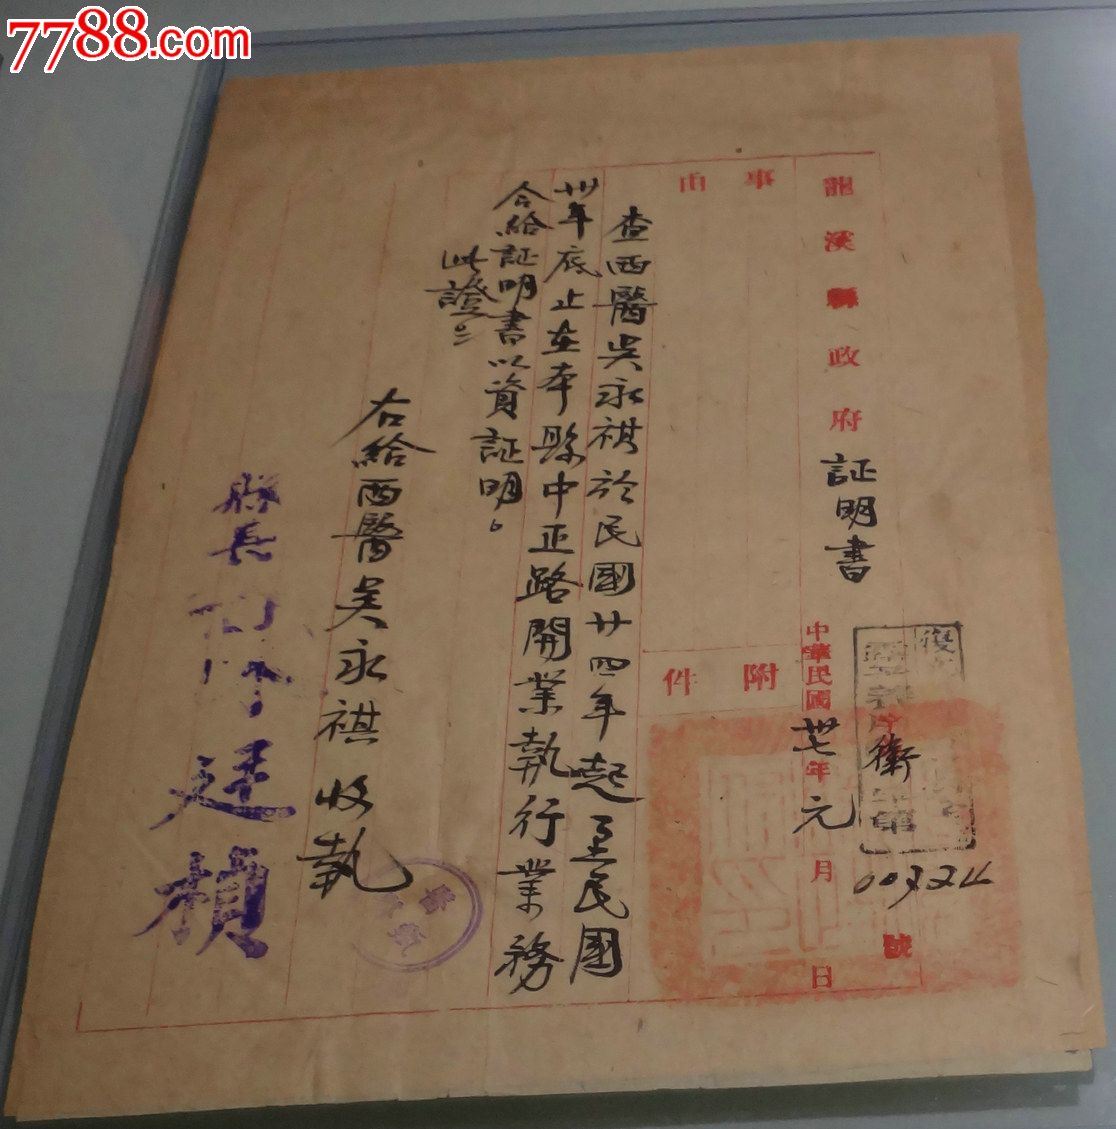 7788.com
龍溪縣政府証明書
中華民國卅七年元月日
衛
00324
號
事由
附件
查西醫吳永祺於民國廿四年起至民國
卅年底止在本縣中正路開業執行業務
合給証明書以資証明。
此證
右給西醫吳永祺收執
縣長陳廷楨